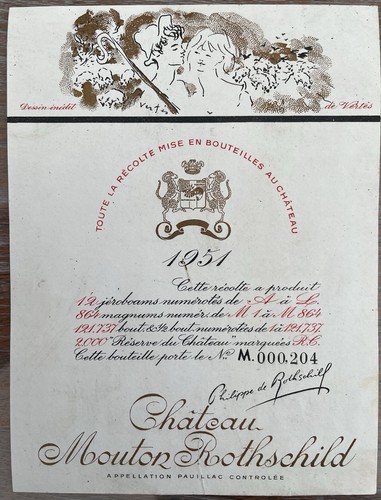 Vertès
Dessin inédit de Vertès
TOUTE LA RÉCOLTE MISE EN BOUTEILLES AU CHÂTEAU
1951
Cette récolte a produit
12 jéroboams numérotés de A à L.
864 magnums numér. de M 1 à M 864
121.737 bout. & ½ bout. numérotées de 1 à 121.737
2.000 "Réserve du Château" marquées R.C.
Cette bouteille porte le No. M.000.204
Philippe de Rothschild
Château
Mouton Rothschild
APPELLATION PAUILLAC CONTROLÉE